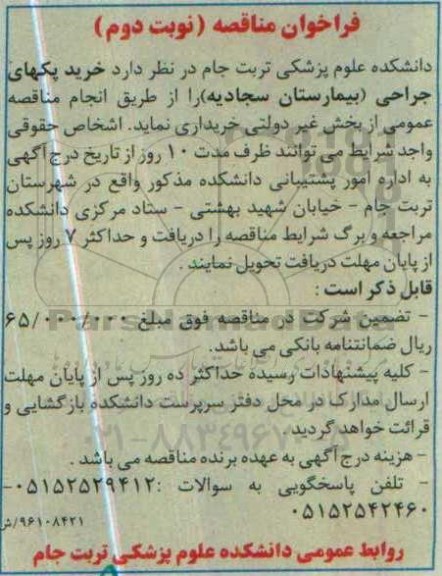 فراخوان مناقصه (نوبت دوم)
دانشکده علوم پزشکی تربت جام در نظر دارد خرید پکهای
جراحی (بیمارستان سجادیه)را از طریق انجام مناقصه
عمومی از بخش غیر دولتی خریداری نماید. اشخاص حقوقی
واجد شرایط می توانند ظرف مدت ۱۰ روز از تاریخ درج آگهی
به اداره امور پشتیبانی دانشکده مذکور واقع در شهرستان
تربت جام - خیابان شهید بهشتی - ستاد مرکزی دانشکده
مراجعه و برگ شرایط مناقصه را دریافت و حداکثر ۷ روز پس
از پایان مهلت دریافت تحویل نمایند .
قابل ذکر است :
- تضمین شرکت در مناقصه فوق مبلغ ۶۵/۰۰۰/۰۰۰
ریال ضمانتنامه بانکی می باشد .
- کلیه پیشنهادات رسیده حداکثر ده روز پس از پایان مهلت
ارسال مدارک در محل دفتر سرپرست دانشکده بازگشایی و
قرائت خواهد گردید
- هزینه درج آگهی به عهده برنده مناقصه می باشد .
- تلفن پاسخگویی به سوالات :۰۵۱۵۲۵۲۹۴۱۲-
۰۵۱۵۲۵۴۲۴۶۰
۹۶۱۰۸۴۲۱/ش
روابط عمومی دانشکده علوم پزشکی تربت جام
ParsNamadData
۰۲۱-۸۸۳۴۹۶۷۰-۵